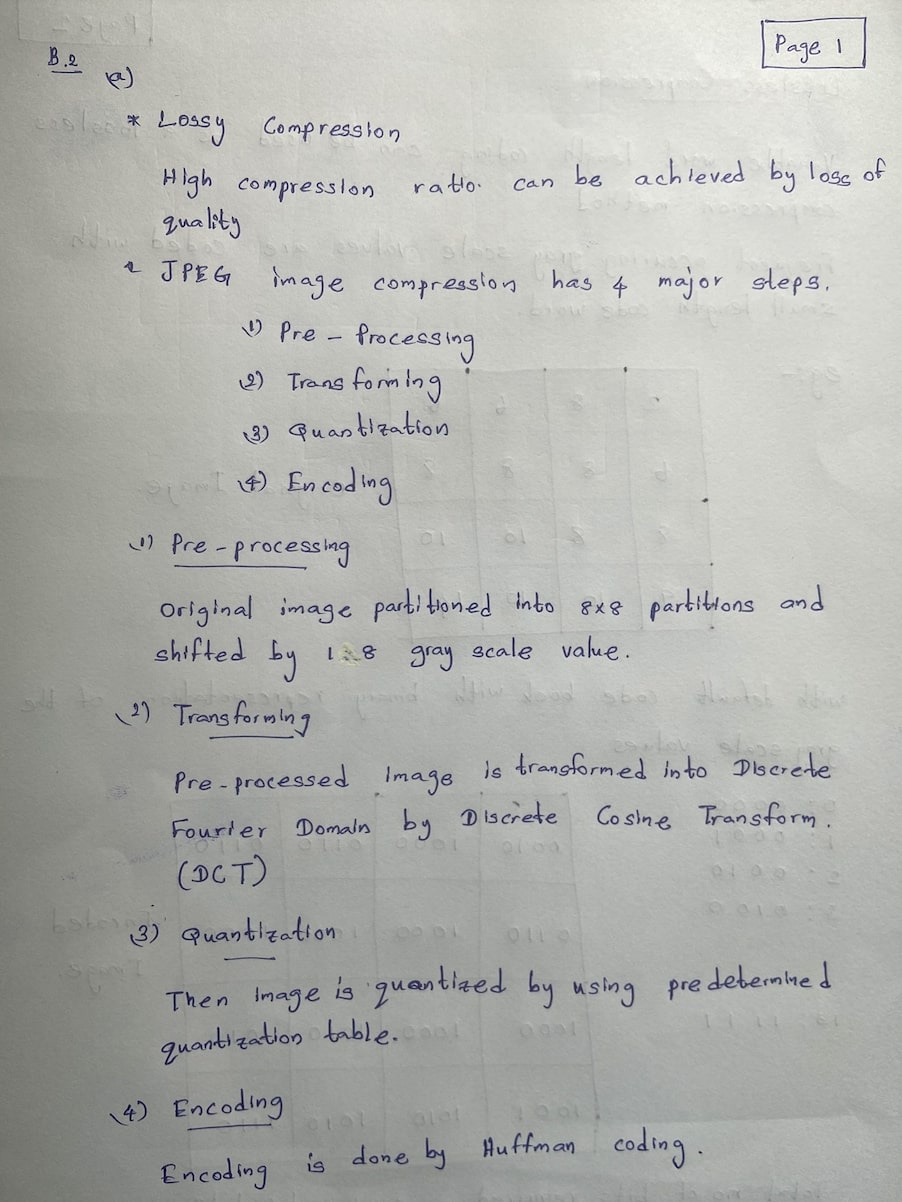 Page 1
B.2
(a)
* Lossy Compression
High compression ratio. can be achieved by loss of
quality
* JPEG image compression has 4 major steps.
1) Pre - Processing
2) Transforming
3) Quantization
4) Encoding
1) Pre - processing
Original image partitioned into 8x8 partitions and
shifted by 128 gray scale value.
2) Transforming
Pre - processed Image is transformed into Discrete
Fourier Domain by Discrete Cosine Transform.
(DCT)
3) Quantization
Then image is quantized by using predetermined
quantization table.
4) Encoding
Encoding is done by Huffman coding.